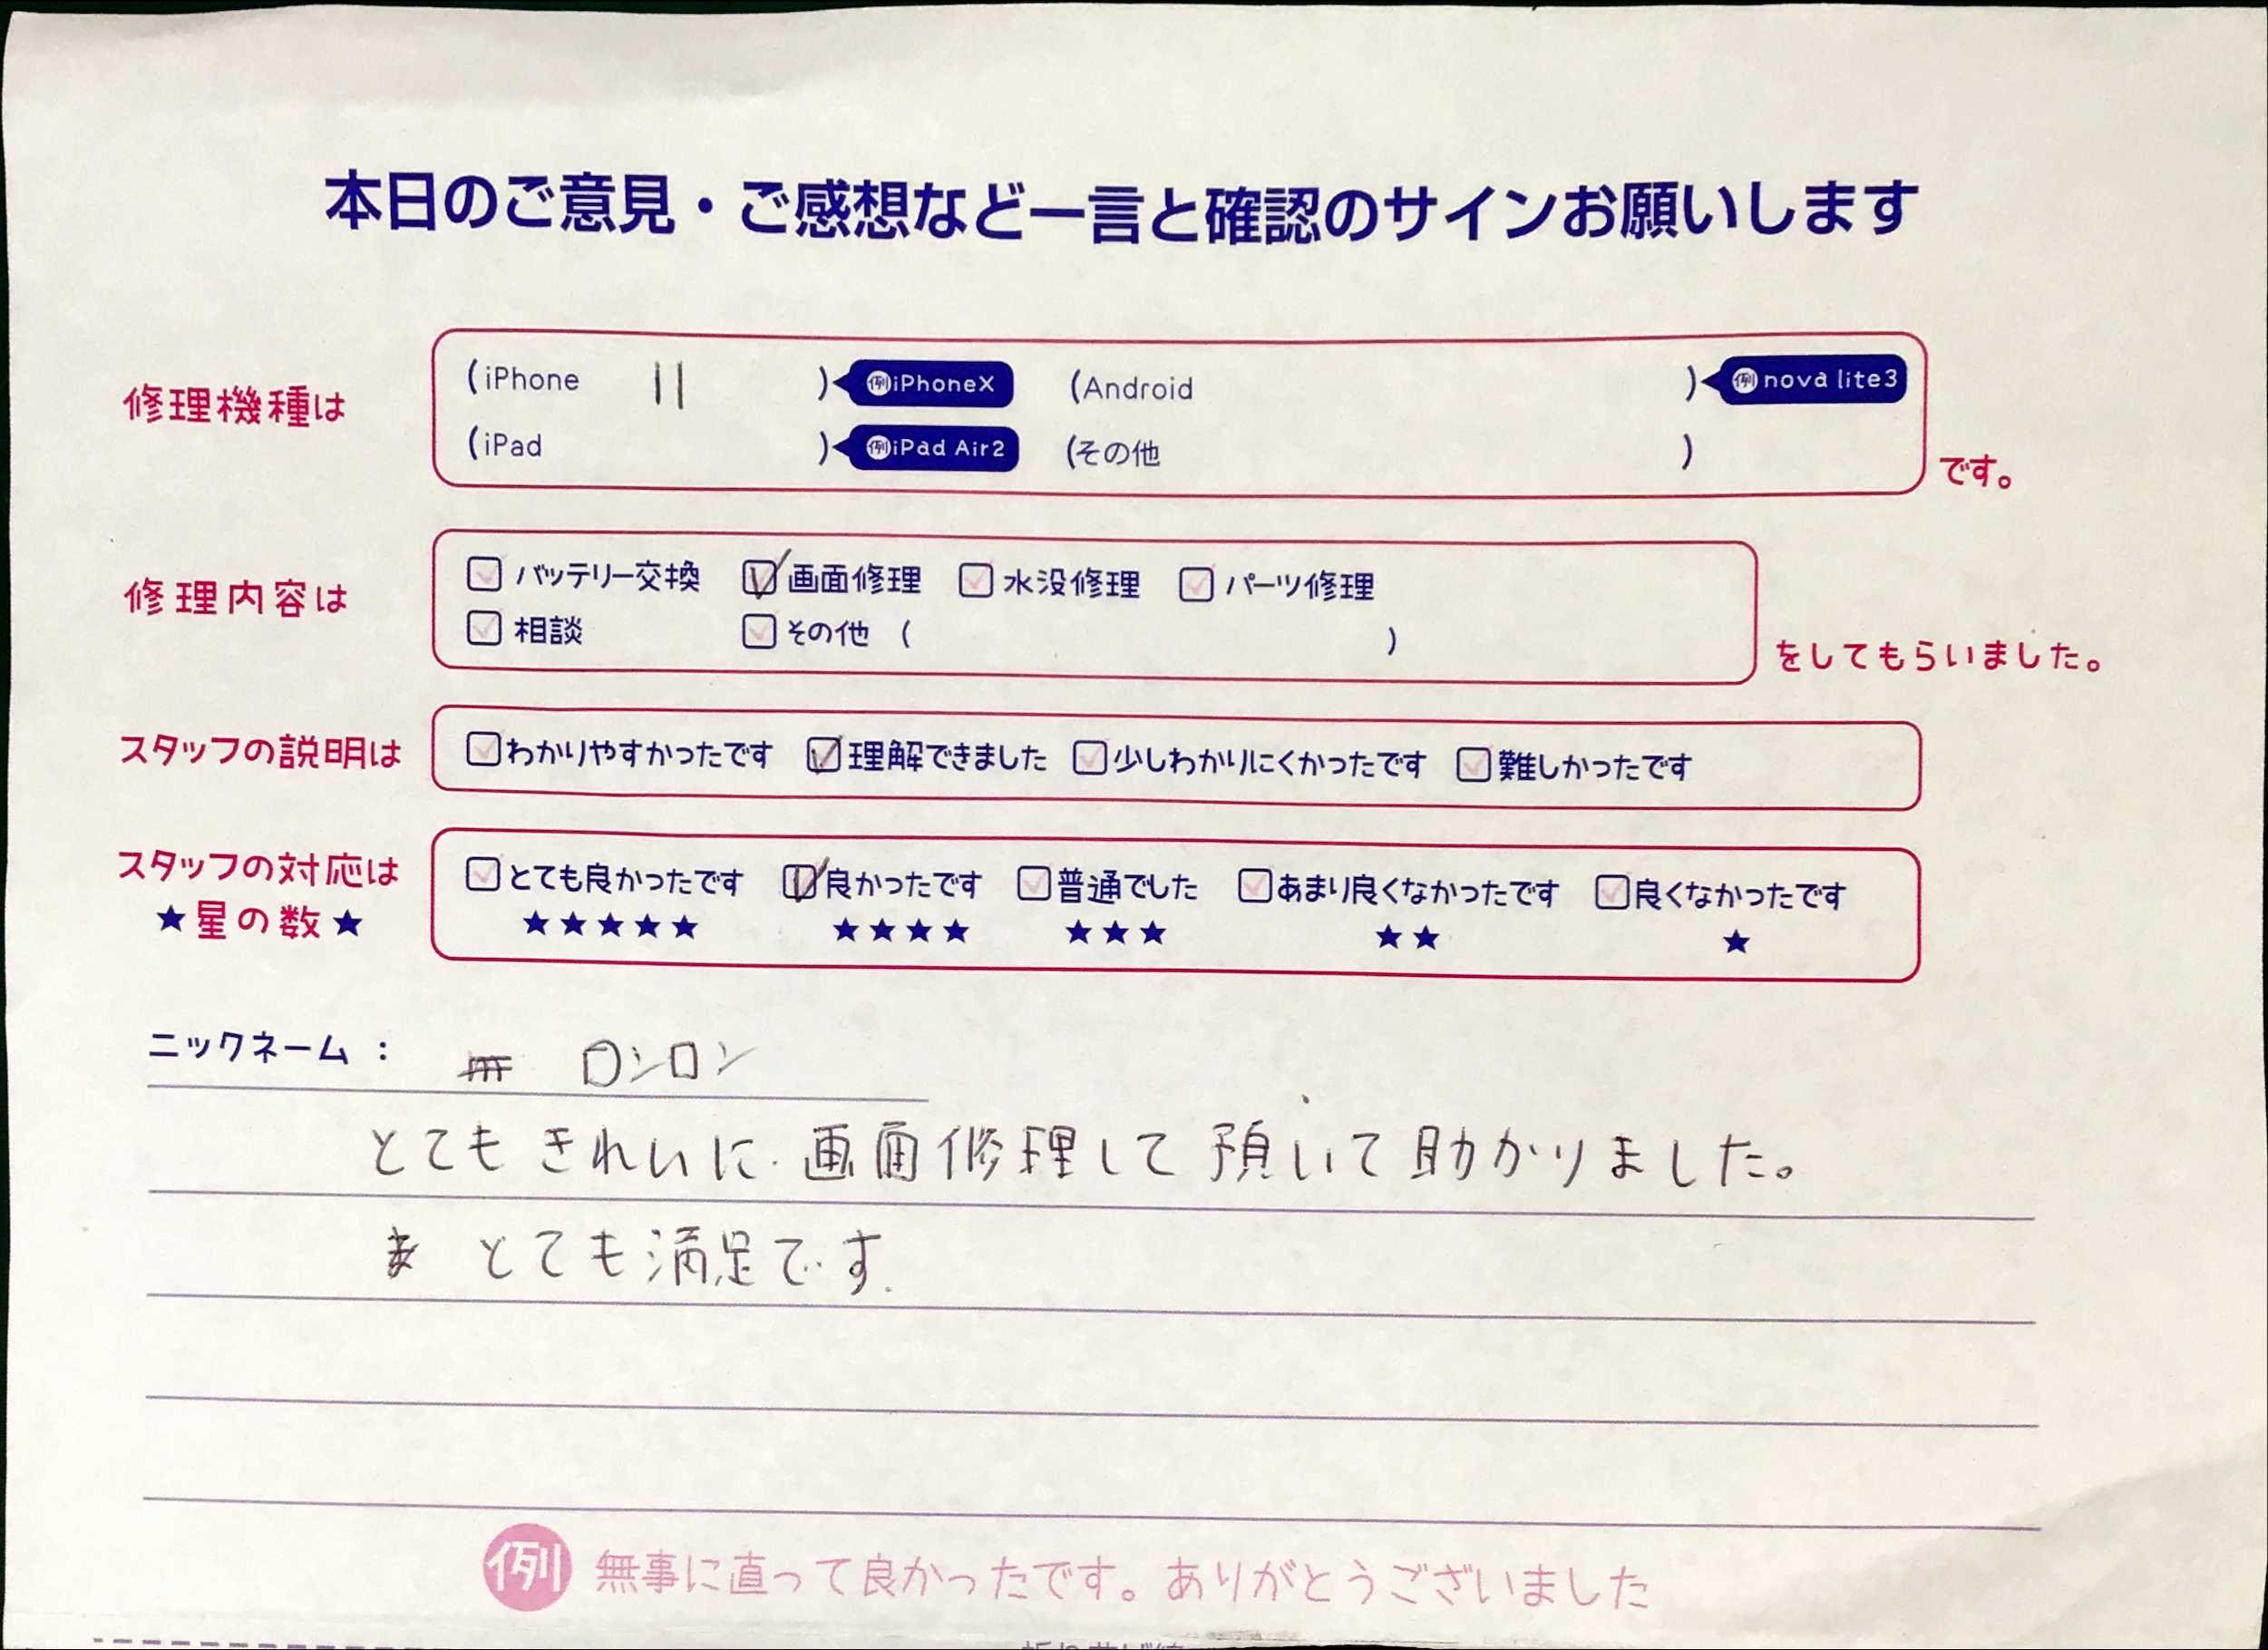 本日のご意見・ご感想など一言と確認のサインお願いします
修理機種は (iPhone 11 ) 例iPhoneX (Android ) 例nova lite3
(iPad ) 例iPad Air2 (その他 ) です。
修理内容は バッテリー交換 画面修理 水没修理 パーツ修理
相談 その他 ( ) をしてもらいました。
スタッフの説明は わかりやすかったです 理解できました 少しわかりにくかったです 難しかったです
スタッフの対応は とても良かったです 良かったです 普通でした あまり良くなかったです 良くなかったです
★星の数★ ★★★★★ ★★★★ ★★★ ★★ ★
ニックネーム： ロンロン
とてもきれいに画面修理して預いて助かりました。
とても満足です.
例 無事に直って良かったです。ありがとうございました